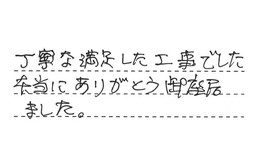 丁寧な満足した工事でした
本当にありがとう御座居
ました。